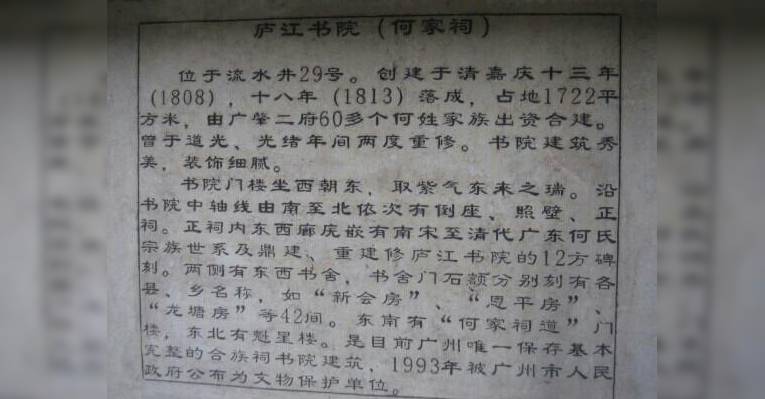 庐江书院（何家祠）
位于流水井29号。创建于清嘉庆十三年
（1808），十八年（1813）落成，占地1722平
方米，由广肇二府60多个何姓家族出资合建。
曾于道光、光绪年间两度重修。书院建筑秀
美，装饰细腻。
书院门楼坐西朝东，取紫气东来之瑞。沿
书院中轴线由南至北依次有倒座、照壁、正
祠。正祠内东西廊庑嵌有南宋至清代广东何氏
宗族世系及鼎建、重建修庐江书院的12方碑
刻。两侧有东西书舍，书舍门石额分别刻有各
县、乡名称，如“新会房”、“恩平房”、
“龙塘房”等42间。东南有“何家祠道”门
楼，东北有魁星楼。是目前广州唯一保存基本
完整的合族祠书院建筑，1993年被广州市人民
政府公布为文物保护单位。